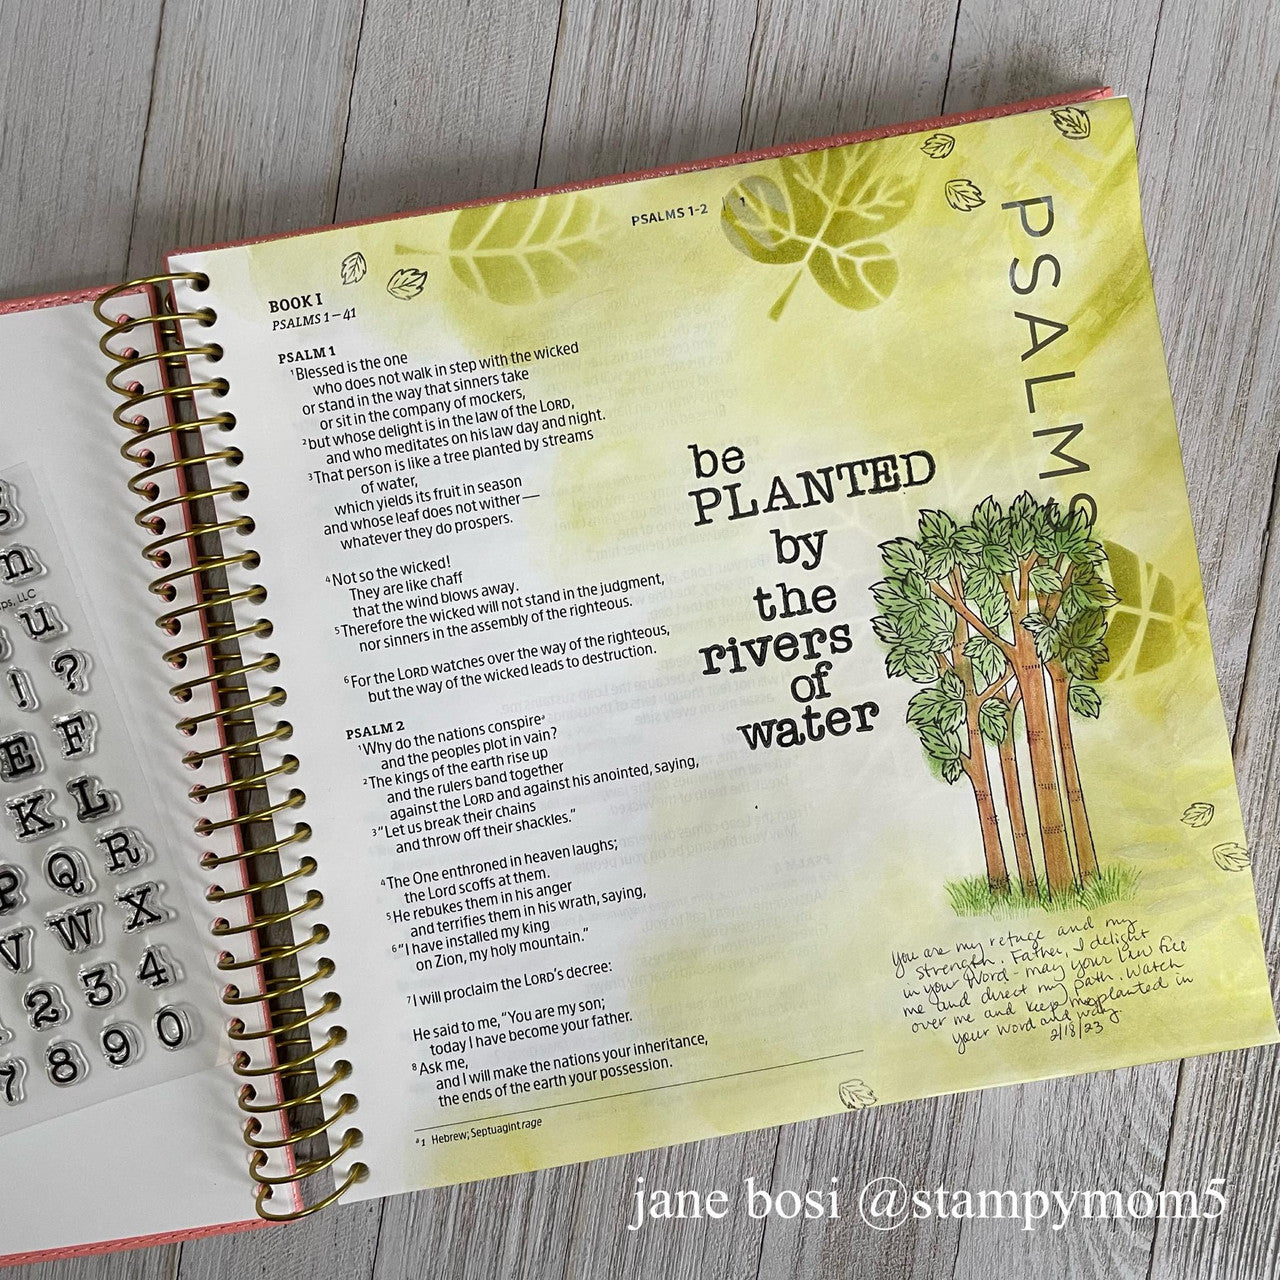 PSALMS 1-2 | 1
PSALMS
BOOK I
PSALMS 1–41
PSALM 1
1 Blessed is the one
who does not walk in step with the wicked
or stand in the way that sinners take
or sit in the company of mockers,
2 but whose delight is in the law of the LORD,
and who meditates on his law day and night.
3 That person is like a tree planted by streams
of water,
which yields its fruit in season
and whose leaf does not wither—
whatever they do prospers.
4 Not so the wicked!
They are like chaff
that the wind blows away.
5 Therefore the wicked will not stand in the judgment,
nor sinners in the assembly of the righteous.
6 For the LORD watches over the way of the righteous,
but the way of the wicked leads to destruction.
PSALM 2
1 Why do the nations conspire a
and the peoples plot in vain?
2 The kings of the earth rise up
and the rulers band together
against the LORD and against his anointed, saying,
3 “Let us break their chains
and throw off their shackles.”
4 The One enthroned in heaven laughs;
the Lord scoffs at them.
5 He rebukes them in his anger
and terrifies them in his wrath, saying,
6 “I have installed my king
on Zion, my holy mountain.”
7 I will proclaim the LORD’s decree:
He said to me, “You are my son;
today I have become your father.
8 Ask me,
and I will make the nations your inheritance,
the ends of the earth your possession.
a 1 Hebrew; Septuagint rage
be
PLANTED
by
the
rivers
of
water
You are my refuge and my
strength. Father, I delight
in your Word - may your law free
me and direct my path. Watch
over me and keep me planted in
your word and way
2/18/23
g
n
ps, LLC
u
! ?
E F
K L
P Q R
V W X
2 3 4
7 8 9 0
jane bosi @stampymom5